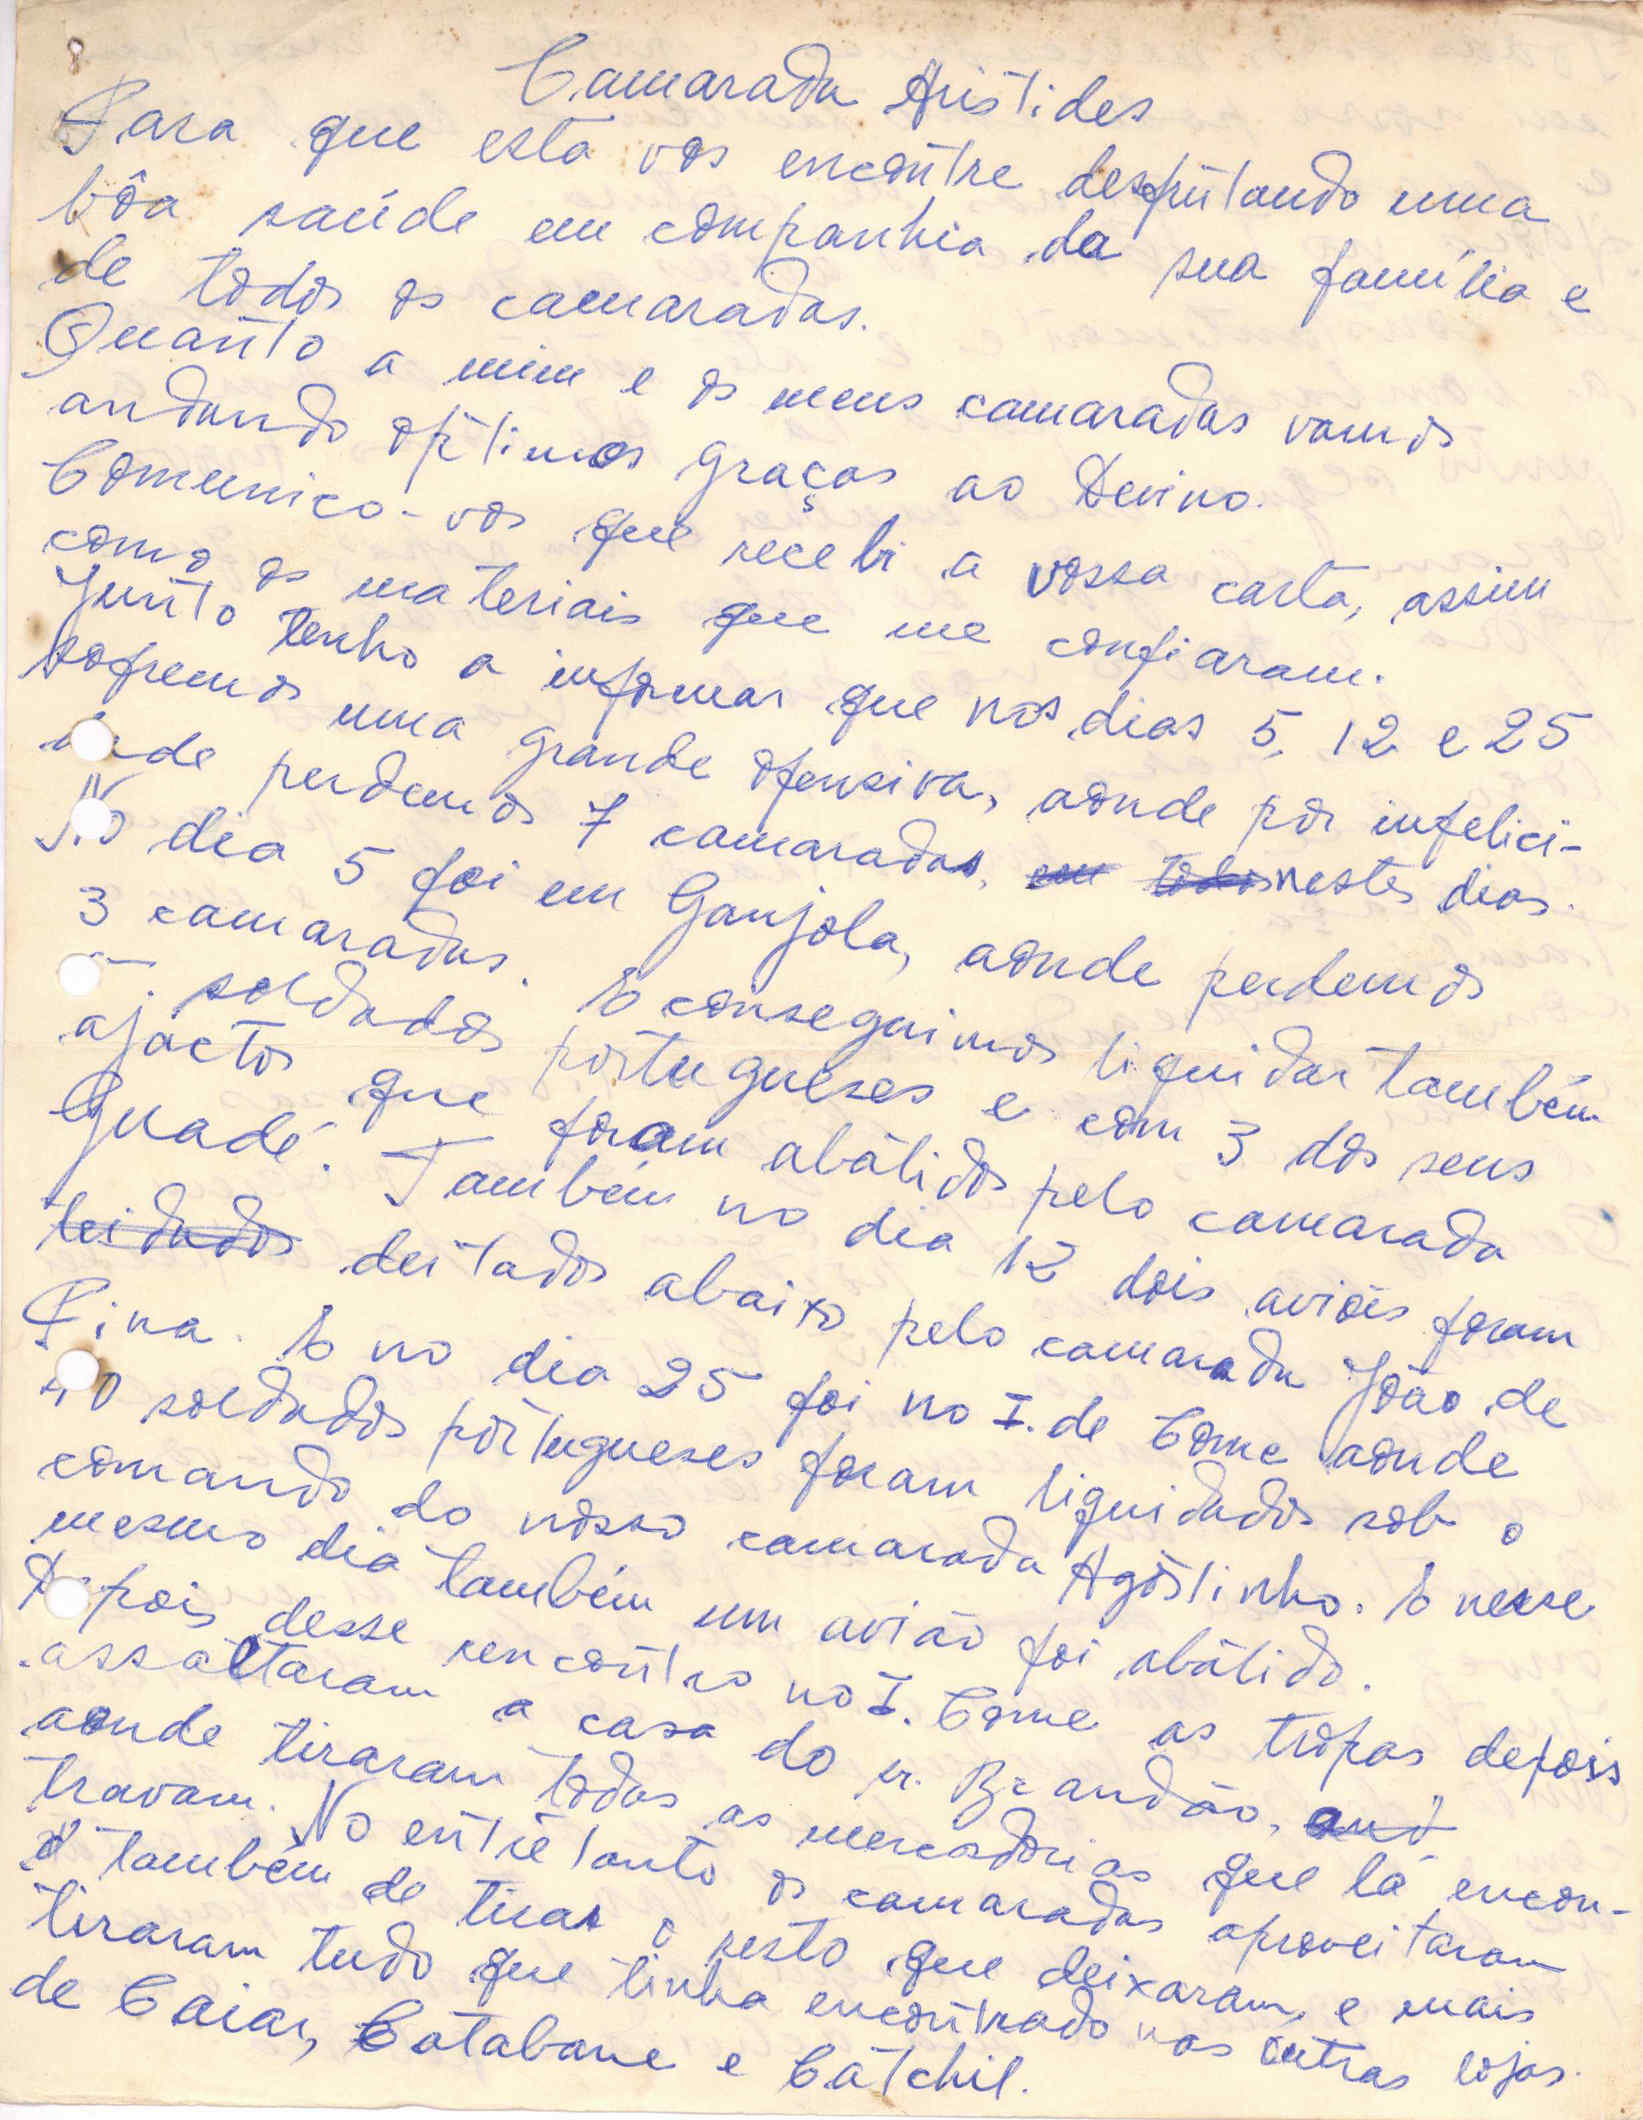 Camarada Aristides
Para que esta vos encontre desfrutando uma
bôa saúde em companhia da sua família e
de todos os camaradas.
Quanto a mim e os meus camaradas vamos
andando optimos graças ao Devino.
Comunico-vos que recebi a vossa carta, assim
como os materiais que me confiaram.
Junto tenho a informar que nos dias 5, 12 e 25
sofremos uma grande ofensiva, aonde por infelici-
dade perdemos 7 camaradas, em todos nestes dias.
No dia 5 foi em Ganjola, aonde perdemos
3 camaradas. E conseguimos liquidar também
soldados portugueses e com 3 dos seus
ajactos que foram abàtidos pelo camarada
Guadé. Também no dia 12 dois aviões foram
deitados abaixo pelo camarada João de
Pina. E no dia 25 foi no I. de Come aonde
40 soldados portugueses foram liquidados sob o
comando do nosso camarada Agostinho. E nesse
mesmo dia também um avião foi abàtido.
Depois desse rencontro no I. Come as tropas depois
assaltaram a casa do sr. Brandão,
aonde tiraram todas as mercadorias que lá encon-
travam. No entretanto os camaradas aproveitaram
também de tirar o resto que deixaram, e mais
tiraram tudo que tinha encontrado nas outras lojas.
de Caiar, Catabane e Cátchil.